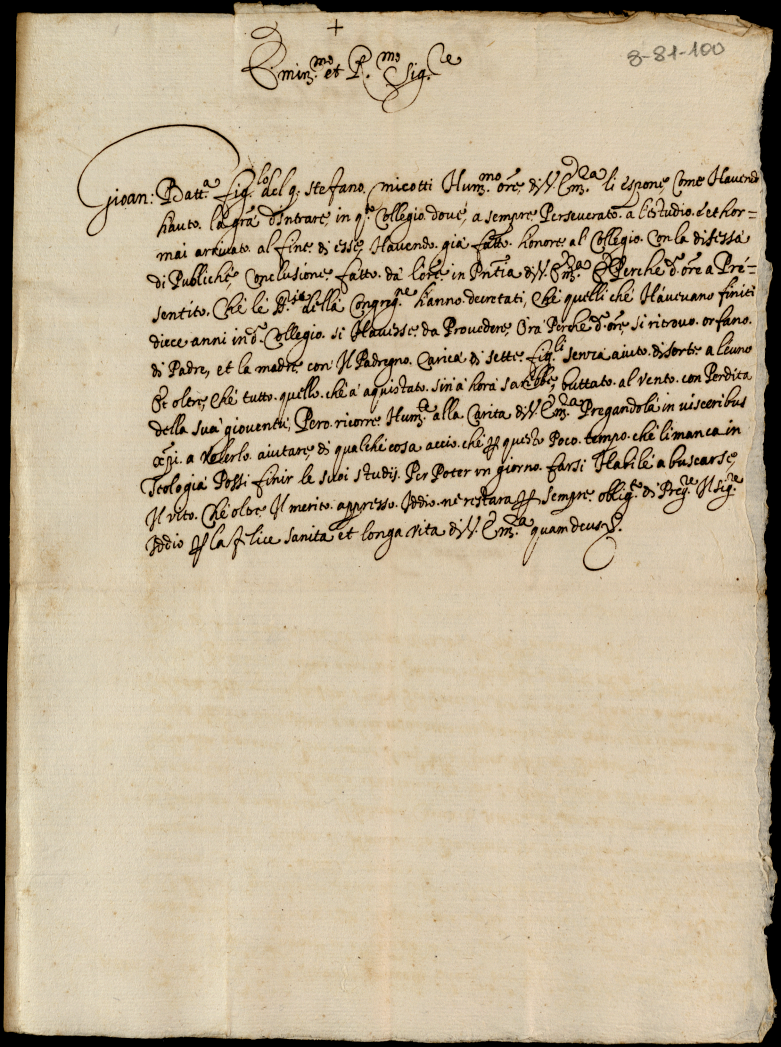 +
Emin.mo et R.mo Sig.re
8-81-100
Gioan: Batt.a fig.lo del q. Stefano. micotti Hum.mo ore. di V. Em.za li espone, Come Havendo
hauto. la gra d'intrare, in q.to Collegio. dove, a sempre Perseverato. a l'estudio. et hor=
mai arrivato. al fine di esse, Havendo. già fatto. honore al Collegio. Con la difessa
di Publiche, Conclusione fatto. da lore. in Pntia di V. Em.za E Perche d.o ore a Pre=
sentito. Che le della Congreg.ne hanno. decretati, che quelli che Havevano finiti
diece anni in d.o Collegio. si Havesse, da Provedere, Ora Perche d.o ore, si ritrova. orfano.
di Padre, et la madre, con Il Padregno. Carica, di sette, fig.li senza aiuto. di sorte, alcuno
Et oltre, Che tutto. quello. che a aquistato. sin'a hora sarebbe, buttato. al vento. con Perdita
della sua gioventu, Pero. ricorre, Hum.te alla Carita di V. Em.za Pregandola in visceribus
xpi. a volerlo. aiutare, di qualche cosa accio. che p questo Poco. tempo. che li manca in
Teologia Possi finir le suoi studij. Per Poter un giorno. farsi Habile a buscarse,
Il vito. Che oltre Il merito. appresso. Iddio. ne restara p sempre, oblig.to di Preg.re Il sig.re
Iddio p la felice sanita et longa vita di V. Em.za quam deus